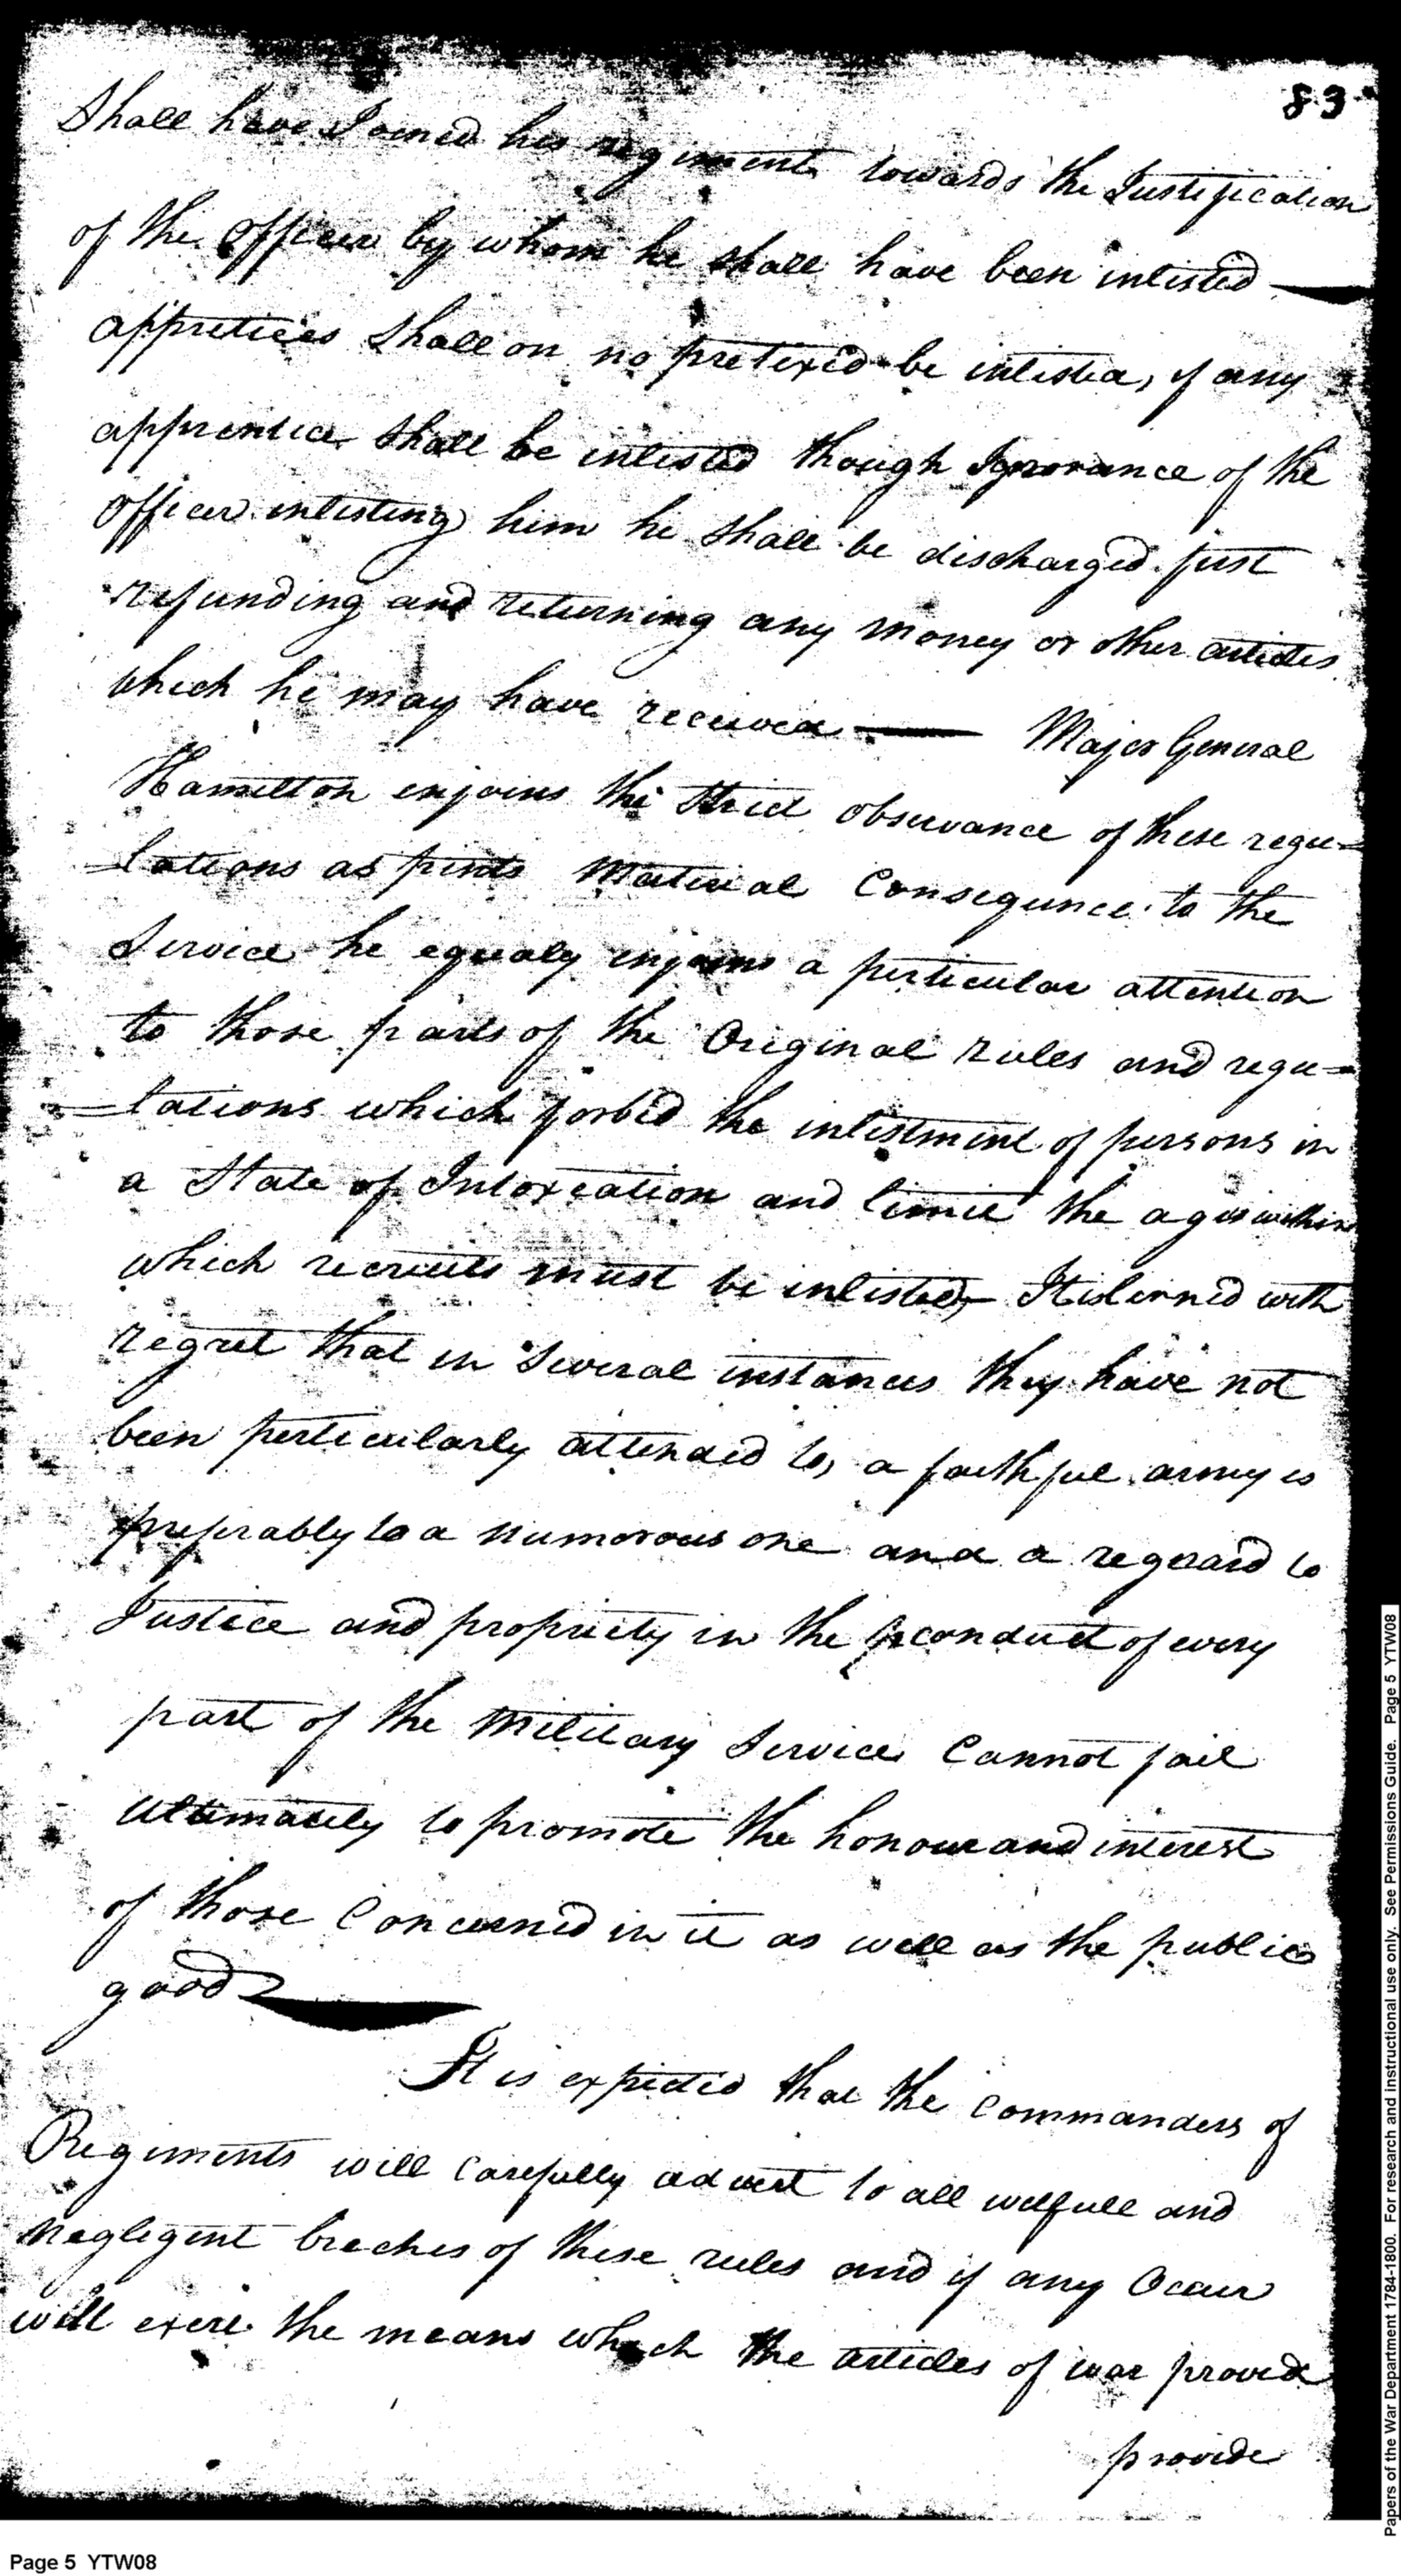 83
Shall have Joined his regiment towards the Justification
of the Officer by whom he shall have been inlisted —
appretices Shall on no pretixed be inlisted, if any
apprentice shall be inlisted though Ignorance of the
Officer inlisting him he shall be discharged first
refunding and returning any money or other articles
which he may have received — Major General
Hamilton enjoins the Strict observance of these regu=
=lations as pints Material Consequnce to the
Service he equaly injoins a perticular attention
to those parts of the Original rules and regu=
=lations which forbid the inlistment of persons in
a State of Intoxcation and limit the ages within
which recruits must be inlisted, It is lerned with
regret that in Several instances they have not
been perticularly attended to, a faithful army is
preferably to a numorous one and a regard to
Justice and propriety in the conduct of every
part of the Military Service Cannot fail
ultimately to promote the honour and interest
of those Concerned in it as well as the public
good —
It is expected that the Commanders of
Regiments will Carefully advert to all willfull and
Negligent breches of these rules and if any Occur
will exert the means which the articles of war provide
provide
Page 5 YTW08
Papers of the War Department 1784-1800. For research and instructional use only. See Permissions Guide. Page 5 YTW08